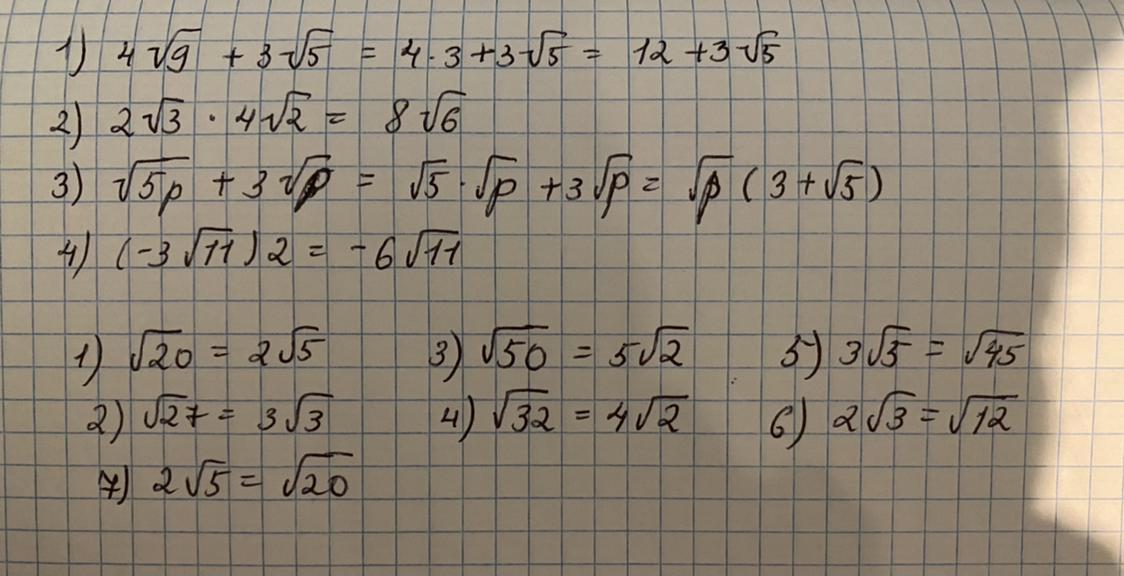 1) 4√9 + 3√5 = 4·3+3√5 = 12 +3√5
2) 2√3 · 4√2 = 8√6
3) √5p + 3√p = √5·√p +3√p = √p (3+√5)
4) (-3√11)2 = -6√11
1) √20 = 2√5 3) √50 = 5√2 5) 3√5 = √45
2) √27 = 3√3 4) √32 = 4√2 6) 2√3 = √12
7) 2√5 = √20